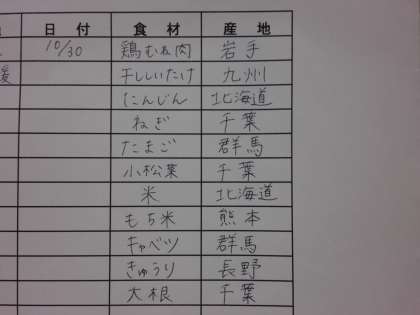 日付 食材 産地
10/30 鶏むね肉 岩手
干ししいたけ 九州
にんじん 北海道
ねぎ 千葉
たまご 群馬
小松菜 千葉
米 北海道
もち米 熊本
キャベツ 群馬
きゅうり 長野
大根 千葉